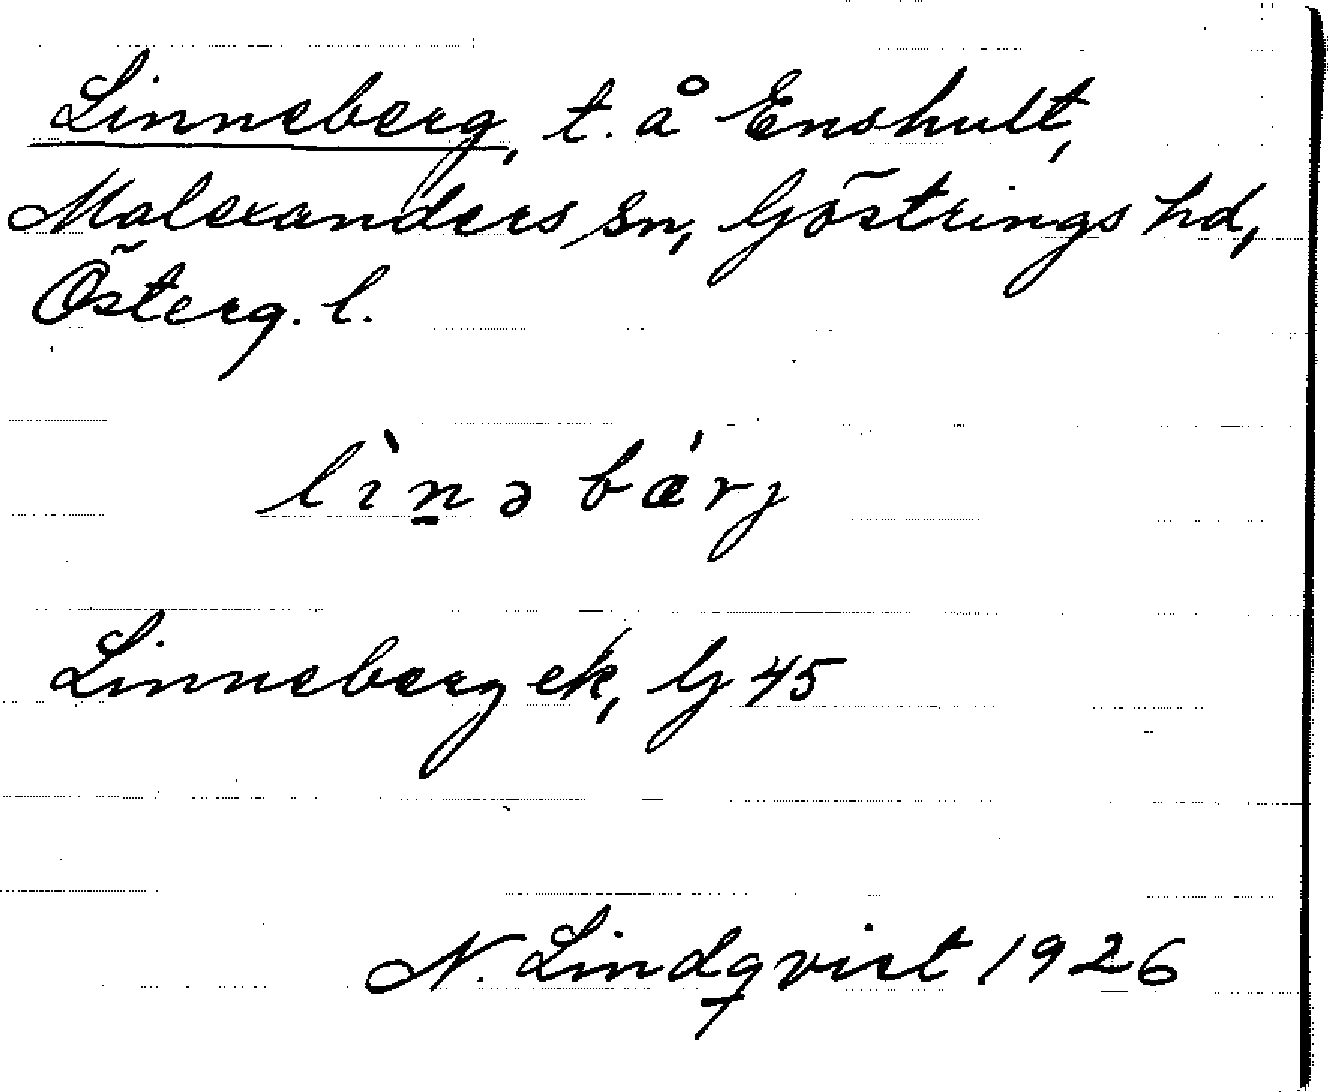 Linneberg, t. å Enshult,
Malexanders sn, Göstrings hd,
Österg. l.
lìnəbǽrj
Linneberg ek, G 45
N. Lindqvist 1926